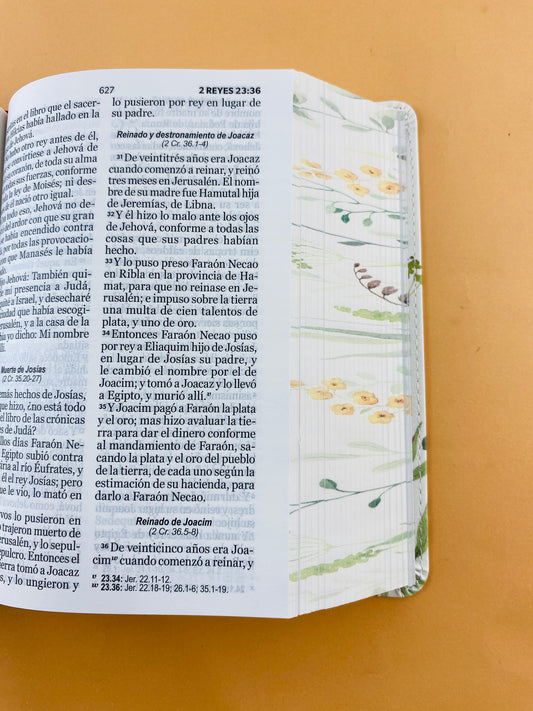 627
2 REYES 23:36
en el libro que el sacer-
había hallado en la
Jehová.
otro rey antes de él,
se convirtiese a Jehová de
corazón, de toda su alma
todas sus fuerzas, conforme
la ley de Moisés; ni des-
de él nació otro igual.
todo eso, Jehová no de-
del ardor con que su gran
se había encendido contra
por todas las provocacio-
con que Manasés le había
dijo Jehová: También qui-
de mi presencia a Judá,
quité a Israel, y desecharé
ciudad que había escogi-
Jerusalén, y a la casa de la
había yo dicho: Mi nombre
allí.
Muerte de Josías
(2 Cr. 35.20-27)
demás hechos de Josías,
que hizo, ¿no está todo
el libro de las crónicas
de Judá?
aquellos días Faraón Ne-
Egipto subió contra
Asiria al río Éufrates, y
él el rey Josías; pero
que le vio, lo mató en
siervos lo pusieron en
trajeron muerto de
Jerusalén, y lo sepul-
sepulcro. Entonces el
tierra tomó a Joacaz
Josías, y lo ungieron y
lo pusieron por rey en lugar de
su padre.
Reinado y destronamiento de Joacaz
(2 Cr. 36.1-4)
31 De veintitrés años era Joacaz
cuando comenzó a reinar, y reinó
tres meses en Jerusalén. El nom-
bre de su madre fue Hamutal hija
de Jeremías, de Libna.
32 Y él hizo lo malo ante los ojos
de Jehová, conforme a todas las
cosas que sus padres habían
hecho.
33 Y lo puso preso Faraón Necao
en Ribla en la provincia de Ha-
mat, para que no reinase en Je-
rusalén; e impuso sobre la tierra
una multa de cien talentos de
plata, y uno de oro.
34 Entonces Faraón Necao puso
por rey a Eliaquim hijo de Josías,
en lugar de Josías su padre, y
le cambió el nombre por el de
Joacim; y tomó a Joacaz y lo llevó
a Egipto, y murió allí.
35 Y Joacim pagó a Faraón la plata
y el oro; mas hizo avaluar la tie-
rra para dar el dinero conforme
al mandamiento de Faraón, sa-
cando la plata y el oro del pueblo
de la tierra, de cada uno según la
estimación de su hacienda, para
darlo a Faraón Necao.
Reinado de Joacim
(2 Cr. 36.5-8)
36 De veinticinco años era Joa-
cim cuando comenzó a reinar, y
23.34: Jer. 22.11-12.
23.36: Jer. 22.18-19; 26.1-6; 35.1-19.